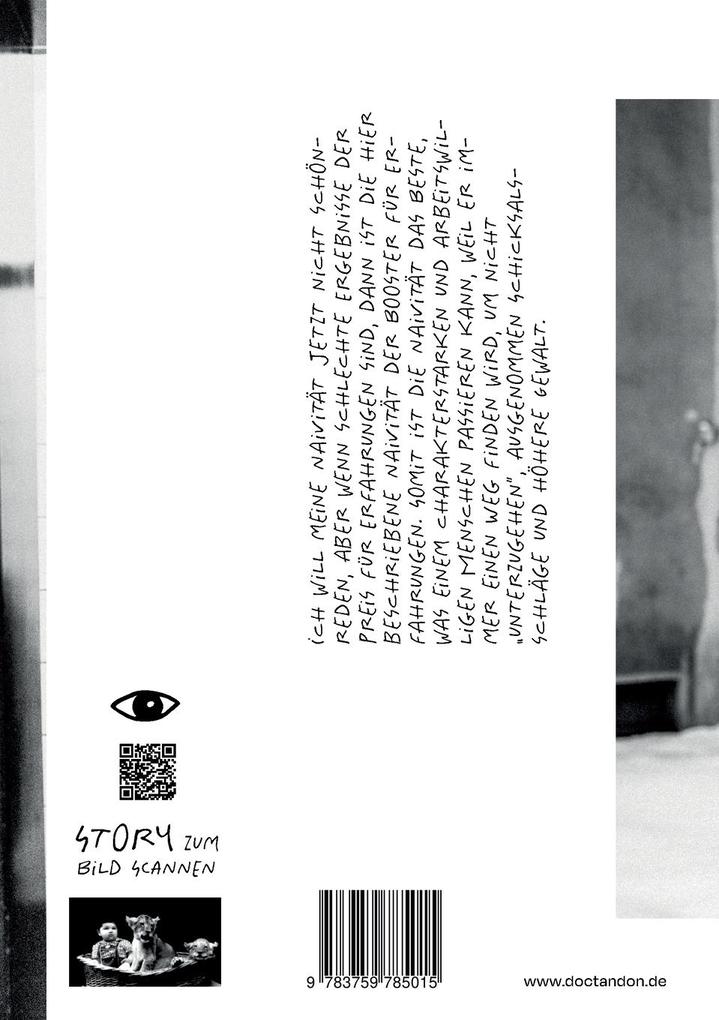 ICH WILL MEINE NAIVITÄT JETZT NICHT SCHÖN-
REDEN, ABER WENN SCHLECHTE ERGEBNISSE DER
PREIS FÜR ERFAHRUNGEN SIND, DANN IST DIE HIER
BESCHRIEBENE NAIVITÄT DER BOOSTER FÜR ER-
FAHRUNGEN. SOMIT IST DIE NAIVITÄT DAS BESTE,
WAS EINEM CHARAKTERSTARKEN UND ARBEITSWIL-
LIGEN MENSCHEN PASSIEREN KANN, WEIL ER IM-
MER EINEN WEG FINDEN WIRD, UM NICHT
„UNTERZUGEHEN", AUSGENOMMEN SCHICKSALS-
SCHLÄGE UND HÖHERE GEWALT.
STORY ZUM
BILD SCANNEN
9 783759 785015
www.doctandon.de